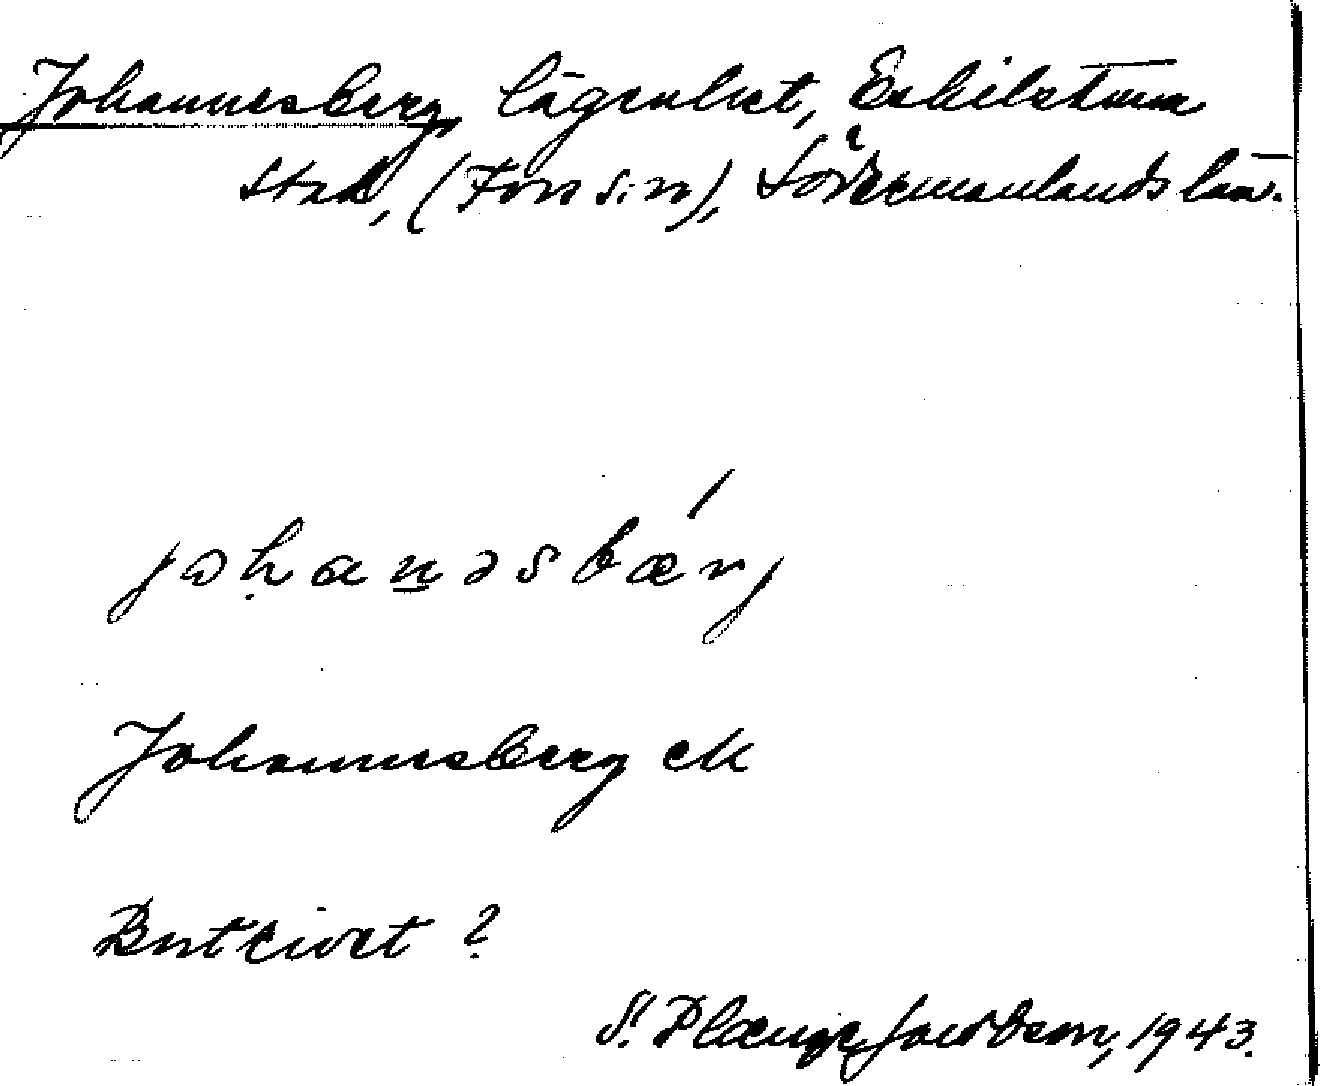 Johannesberg, lägenhet, Eskilstuna
stad, (Fors sn), Södermanlands län.
johanəsbærj
Johannesberg ek
Bortrivet ?
S. Plænge Jacobson, 1943.